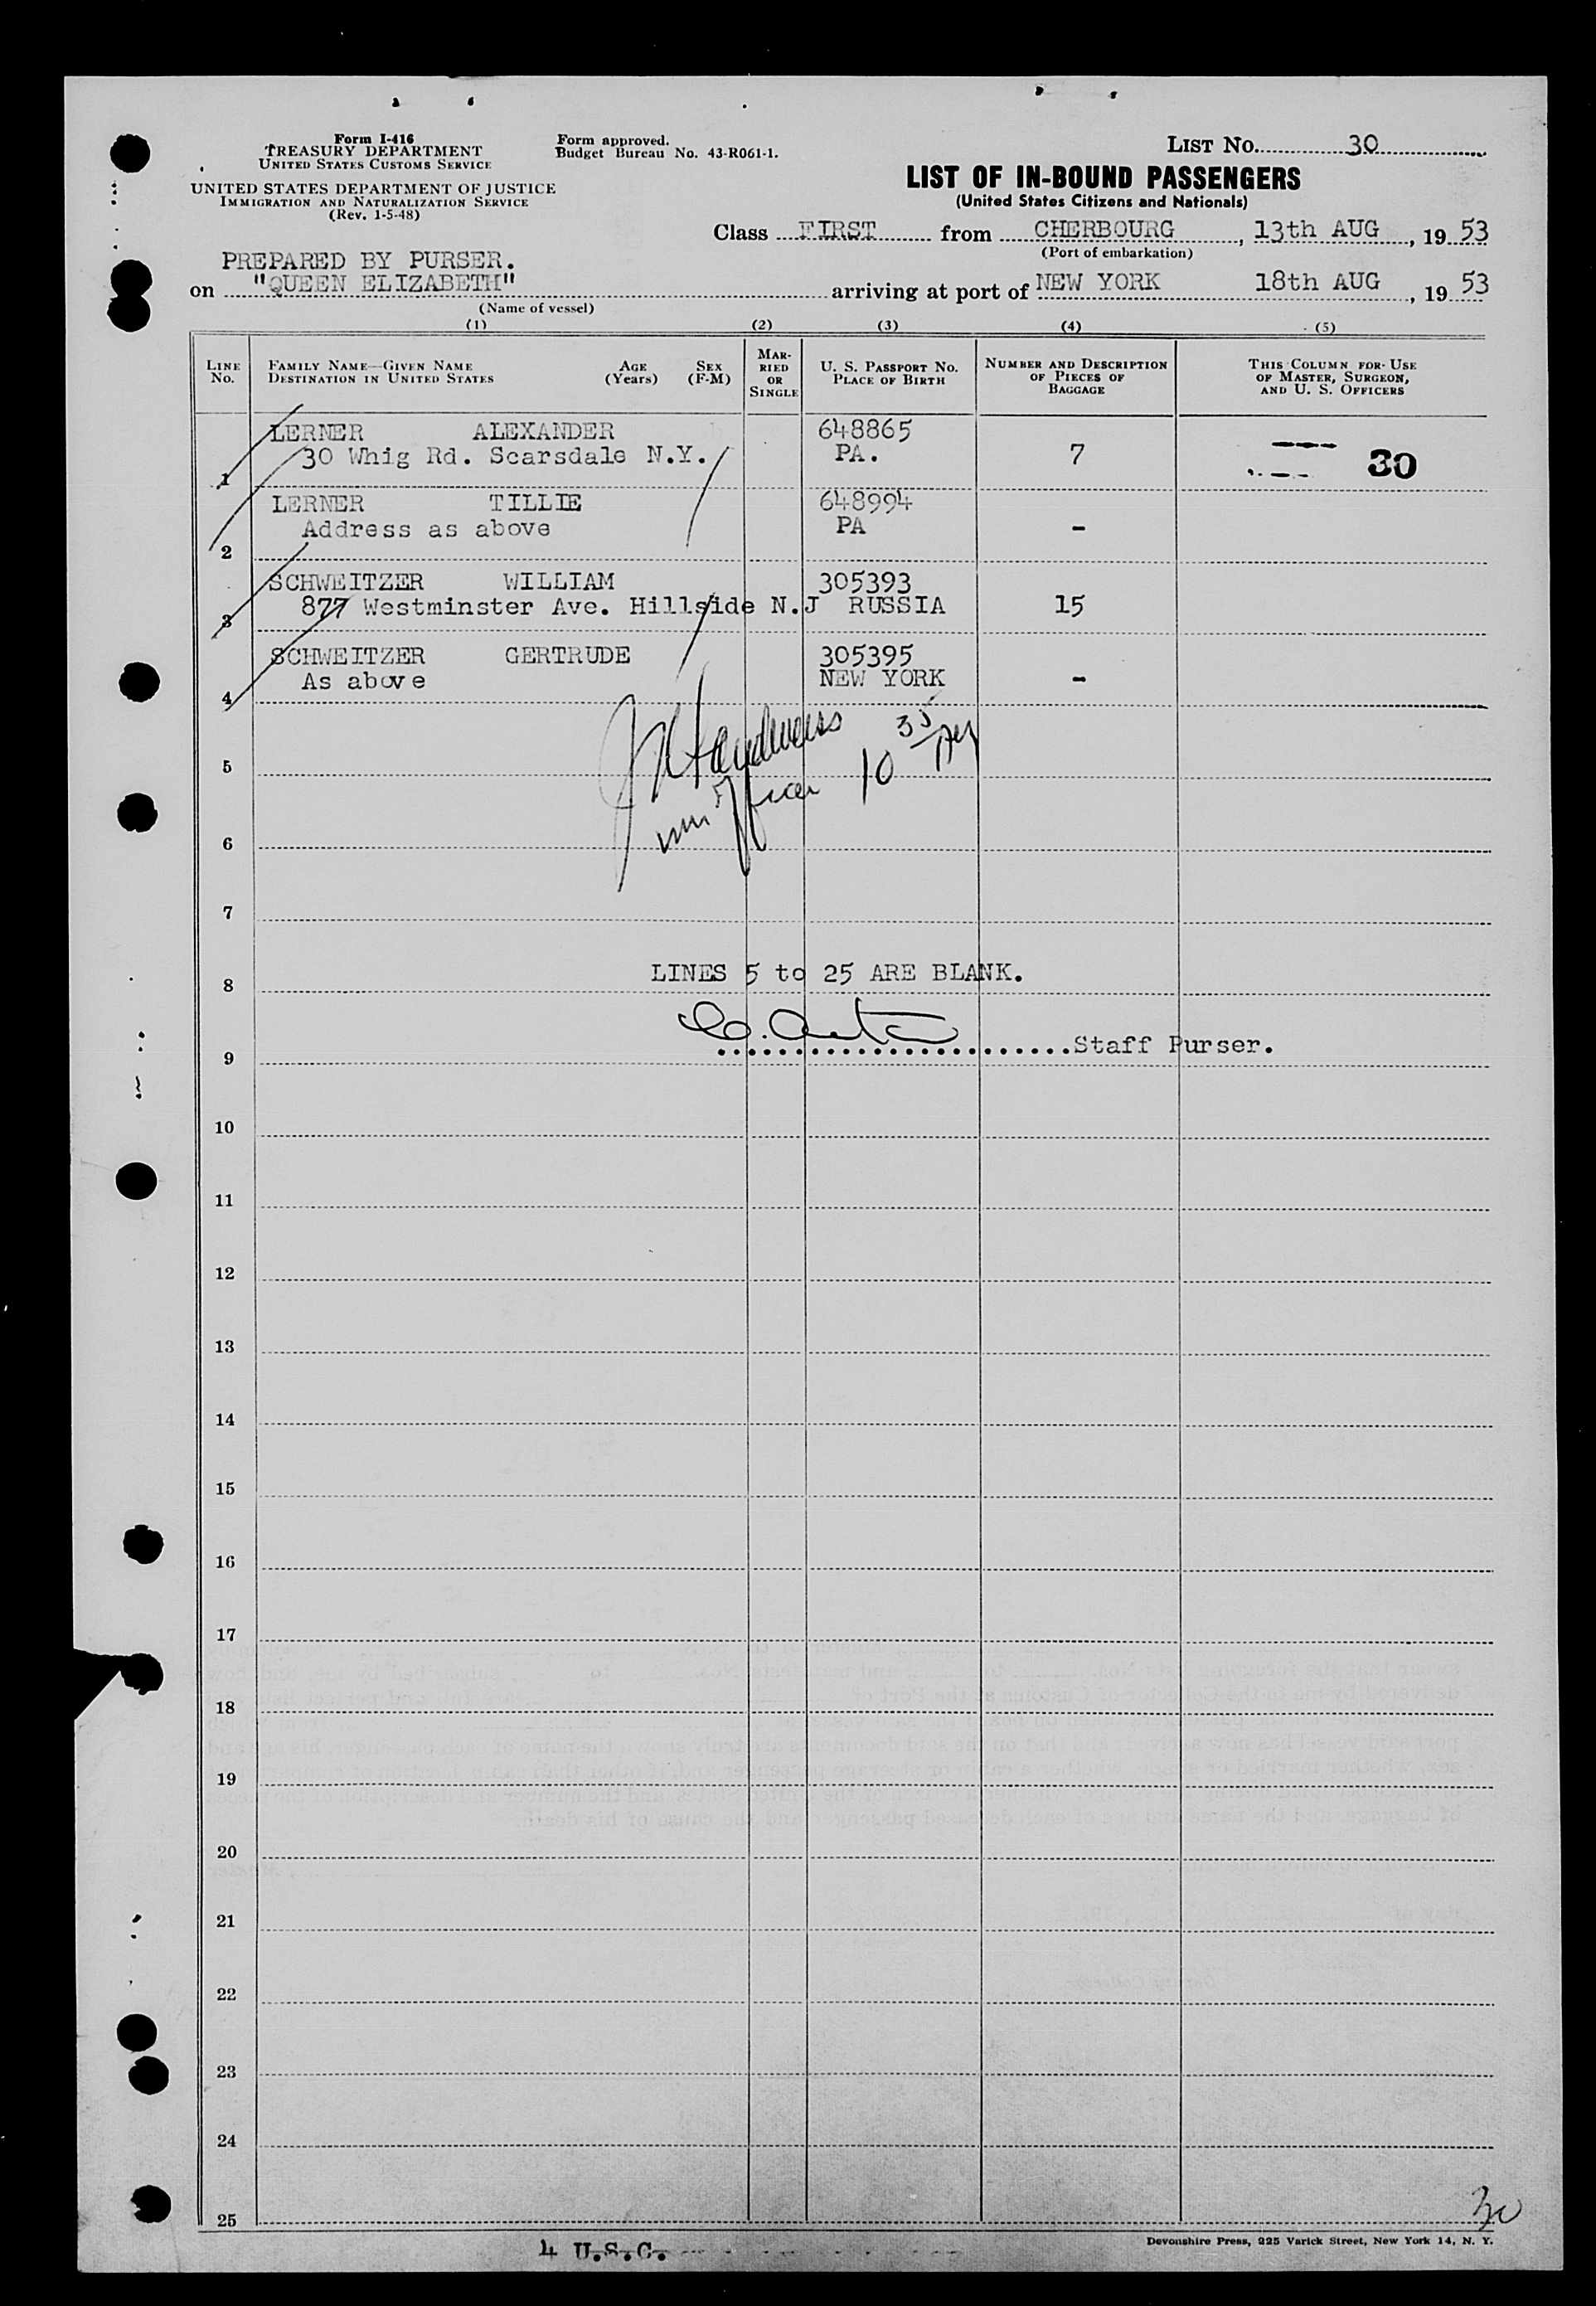 Form I-416
TREASURY DEPARTMENT
UNITED STATES CUSTOMS SERVICE
UNITED STATES DEPARTMENT OF JUSTICE
IMMIGRATION AND NATURALIZATION SERVICE
(Rev. 1-5-48)
Form approved.
Budget Bureau No. 43-R061-1.
LIST No. 30
LIST OF IN-BOUND PASSENGERS
(United States Citizens and Nationals)
Class FIRST from CHERBOURG, 13th AUG, 19 53
(Port of embarkation)
PREPARED BY PURSER.
on "QUEEN ELIZABETH" arriving at port of NEW YORK 18th AUG, 19 53
(Name of vessel)
(1) (2) (3) (4) (5)
LINE No. FAMILY NAME—GIVEN NAME DESTINATION IN UNITED STATES AGE (Years) SEX (F-M) MARRIED OR SINGLE U. S. PASSPORT No. PLACE OF BIRTH NUMBER AND DESCRIPTION OF PIECES OF BAGGAGE THIS COLUMN FOR USE OF MASTER, SURGEON, AND U. S. OFFICERS
LERNER ALEXANDER 648865
1 30 Whig Rd. Scarsdale N.Y. PA. 7 30
LERNER TILLIE 648994
2 Address as above PA -
SCHWEITZER WILLIAM 305393
3 877 Westminster Ave. Hillside N.J RUSSIA 15
SCHWEITZER GERTRUDE 305395
4 As above NEW YORK -
10 35
5
6
7
LINES 5 to 25 ARE BLANK.
8
Staff Purser.
9
10
11
12
13
14
15
16
17
18
19
20
21
22
23
24
25
30
4 U.S.C.
Devonshire Press, 225 Varick Street, New York 14, N. Y.